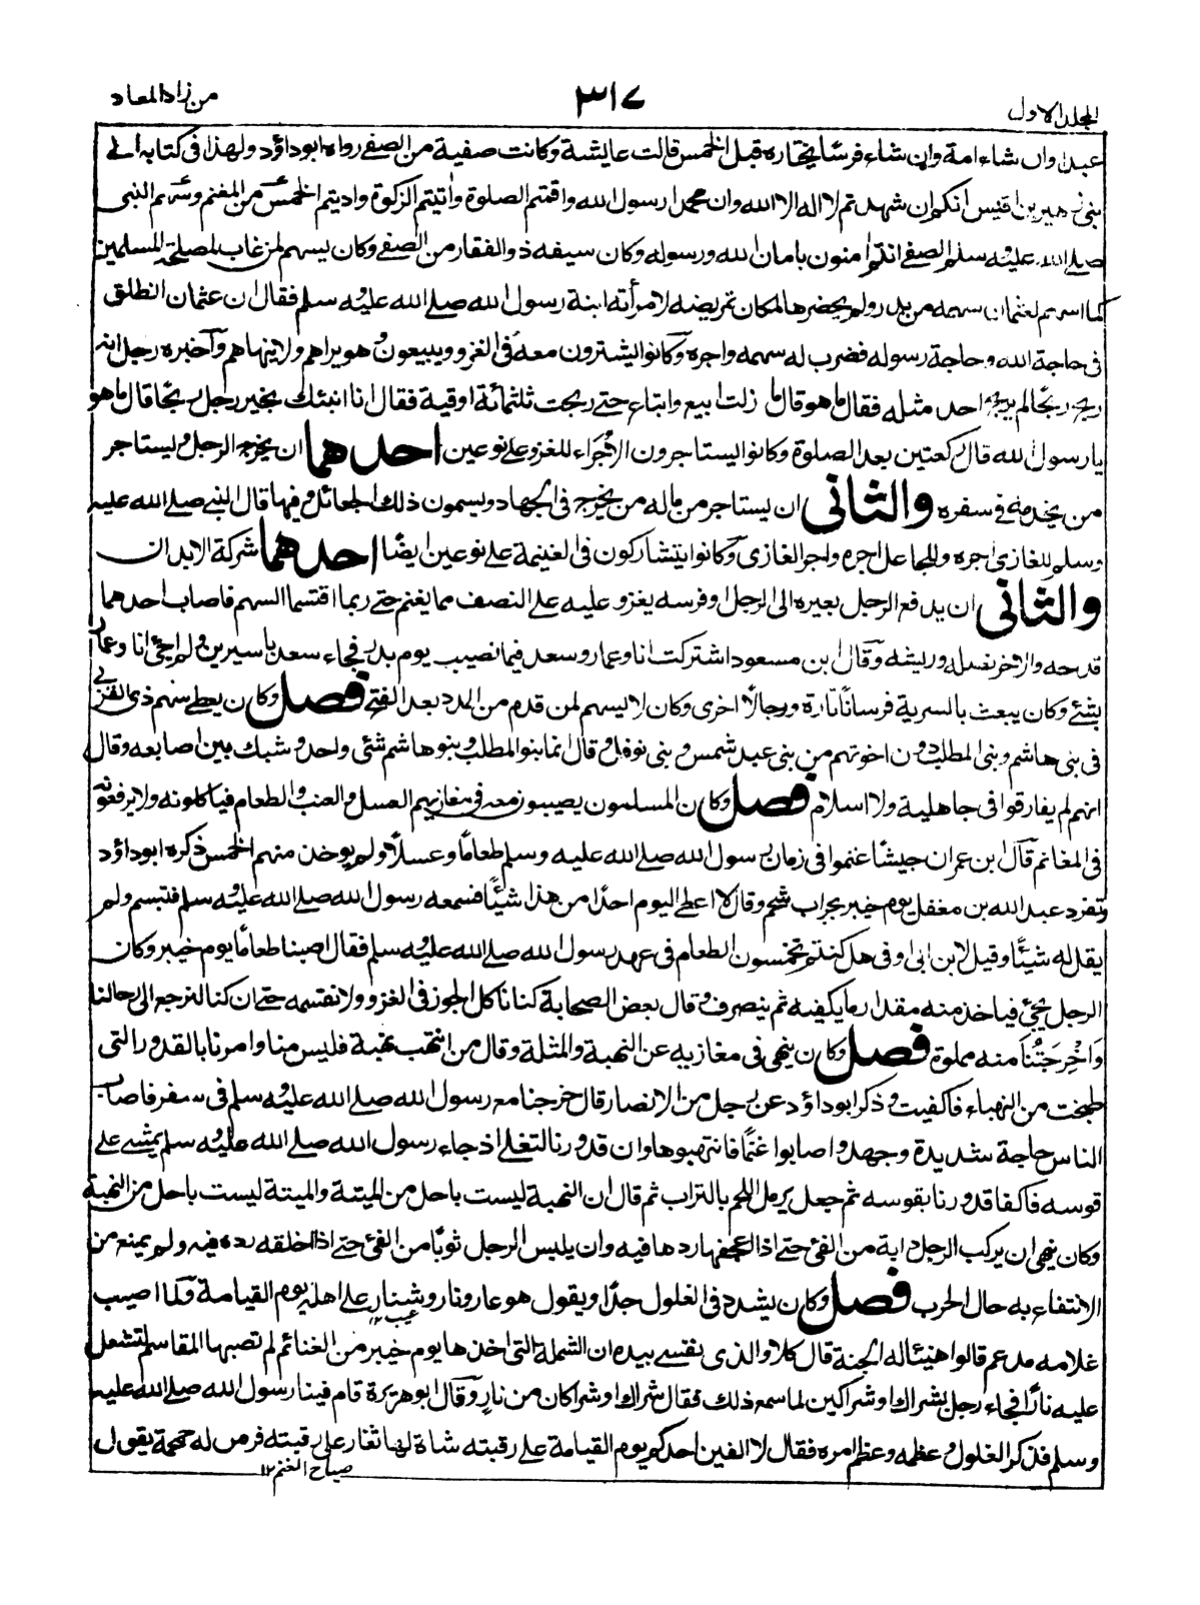 المجلد الاول ٣١٧ من زاد المعاد
عبدا وان شاء امة وان شاء فرسا يختاره قبل الخمس قالت عايشة وكانت صفية من الصفي رواه ابوداؤد ولهذا في كتابه الى
بني زهير بن اقيس انكم ان شهدتم لا اله الا الله وان محمدا رسول الله واقمتم الصلوة واتيتم الزكوة واديتم الخمس من المغنم وسهم النبي
صلے الله عليه وسلم الصفي انتم امنون بامان الله ورسوله وكان سيفه ذو الفقار من الصفي وكان يسهم لمن غاب لمصلحة المسلمين
كما اسهم لعثمان سهمه من بدر ولم يحضرها لمكان تمريضه لامرأته ابنة رسول الله صلے الله عليه وسلم فقال ان عثمان انطلق
في حاجة الله وحاجة رسوله فضرب له سهمه واجره وكانوا يشترون معه في الغزو ويبيعون وهو يراهم ولا ينهاهم وآخبره رجل انه
ربح ربحًا لم يربحه احد مثله فقال ما هو قال ما زلت ابيع وابتاع حتے ربحت ثلثمائة اوقية فقال انا انبئك بخير رجل ربحًا قال ما هو
يا رسول الله قال ركعتين بعد الصلوة وكانوا يستاجرون الاجراء للغزو علے نوعين احدهما ان يخرج الرجل ويستاجر
من يخدمه في سفره والثانى ان يستاجر من ماله من يخرج في الجهاد ويسمون ذلك الجعائل وفيها قال النبي صلے الله عليه
وسلم للغازي اجره وللجاعل اجره واجر الغازي وكانوا يتشاركون في الغنيمة علے نوعين ايضًا احدهما شركة الابدان
والثانى ان يدفع الرجل بعيره الى الرجل او فرسه يغزو عليه علے النصف مما يغنم حتے ربما اقتسما السهم فاصاب احدهما
قدحه والاخر نصله وريشه وقال ابن مسعود اشتركت انا وعمار وسعد فيما نصيب يوم بدر فجاء سعد باسيرين ولم اجئ انا وعمار
بشئے وكان يبعث بالسرية فرسانًا تارة ورجالًا اخرى وكان لا يسهم لمن قدم من المدد بعد الفتح فصل وكان يعطے سهم ذي القربى
في بني هاشم وبني المطلب دون اخوتهم من بني عبد شمس وبني نوفل وقال انما بنو المطلب وبنو هاشم شئ واحد وشبك بين اصابعه وقال
انهم لم يفارقوا في جاهلية ولا اسلام فصل وكان المسلمون يصيبون معه في مغازيهم العسل والعنب والطعام فياكلونه ولا يرفعونه
في المغانم قال ابن عمر ان جيشًا غنموا في زمان رسول الله صلے الله عليه وسلم طعامًا وعسلًا ولم يوخذ منهم الخمس ذكره ابوداؤد
وتفرد عبد الله بن مغفل يوم خيبر بجراب شحم وقال لا اعطے اليوم احدًا من هذا شيئًا فسمعه رسول الله صلے الله عليه وسلم فتبسم ولم
يقل له شيئًا وقيل لابن ابي اوفي هل كنتم تخمسون الطعام في عهد رسول الله صلے الله عليه وسلم فقال اصبنا طعامًا يوم خيبر وكان
الرجل يجئ فياخذ منه مقدار ما يكفيه ثم ينصرف وقال بعض الصحابة كنا ناكل الجوز في الغزو ولا نقسمه حتے ان كنا لنرجع الى رحالنا
وَاَخْرِجَتُنَا منه مملوة فصل وكان ينهى في مغازيه عن النهبة والمثلة وقال من انتهب نهبة فليس منا وامر نا بالقدور التي
طبخت من النهباء فاكفيت وذكر ابوداؤد عن رجل من الانصار قال خرجنا مع رسول الله صلے الله عليه وسلم في سفر فاصاب
الناس حاجة شديدة وجهد واصابوا غنمًا فانتهبوها وان قدورنا لتغلے اذ جاء رسول الله صلے الله عليه وسلم يمشے علے
قوسه فاكفا قدورنا بقوسه ثم جعل يرمل اللحم بالتراب ثم قال ان النهبة ليست باحل من الميتة والميتة ليست باحل من النهبة
وكان ينهى ان يركب الرجل دابة من الفئ حتے اذا اعجفها ردها فيه وان يلبس الرجل ثوبًا من الفئ حتے اذا اخلقه رده فيه ولم يمنع من
الانتفاع به حال الحرب فصل وكان يشدد في الغلول جدًا ويقول هو عار ونار وشنار علے اهله يوم القيامة ولما اصيب
عيب ١٢
غلامه مدعم قالوا هنيئا له الجنة قال كلا والذي نفسے بيده ان الشملة التي اخذها يوم خيبر من الغنائم لم تصبها المقاسم لتشعل
عليه نارًا فجاء رجل بشراك او شراكين لما سمع ذلك فقال شراك او شراكان من نار وقال ابو هريرة قام فينا رسول الله صلے الله عليه
وسلم فذكر الغلول وعظمه وعظم امره فقال لا الفين احدكم يوم القيامة علے رقبته شاة لها ثغار علے رقبته فرس له حمحمة يقول
صياح الغنم ١٢